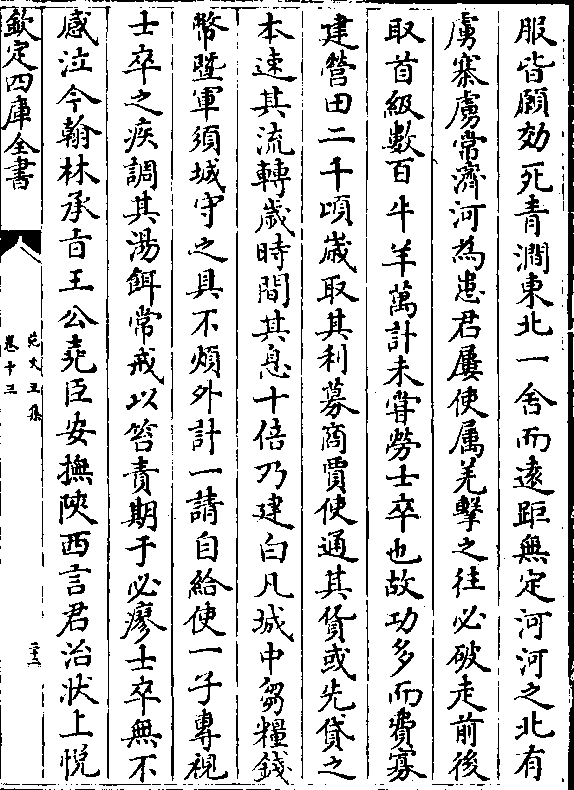 服皆願効死青澗東北一舍而遠距無定河河之北有
虜寨虜常濟河為患君屢使属羌擊之往必破走前後
取首級數百牛羊萬計未嘗勞士卒也故功多而費寡
建營田二千頃歲取其利募商賈使通其貨或先貸之
本速其流轉歲時間其息十倍乃建白凡城中芻糧錢
幣暨軍須城守之具不煩外計一請自給使一子專視
士卒之疾調其湯餌常戒以笞責期于必瘳士卒無不
感泣今翰林承㫖王公堯臣安撫陜西言君治狀上悅
欽定四庫全書
范文正集
卷十三
二十三